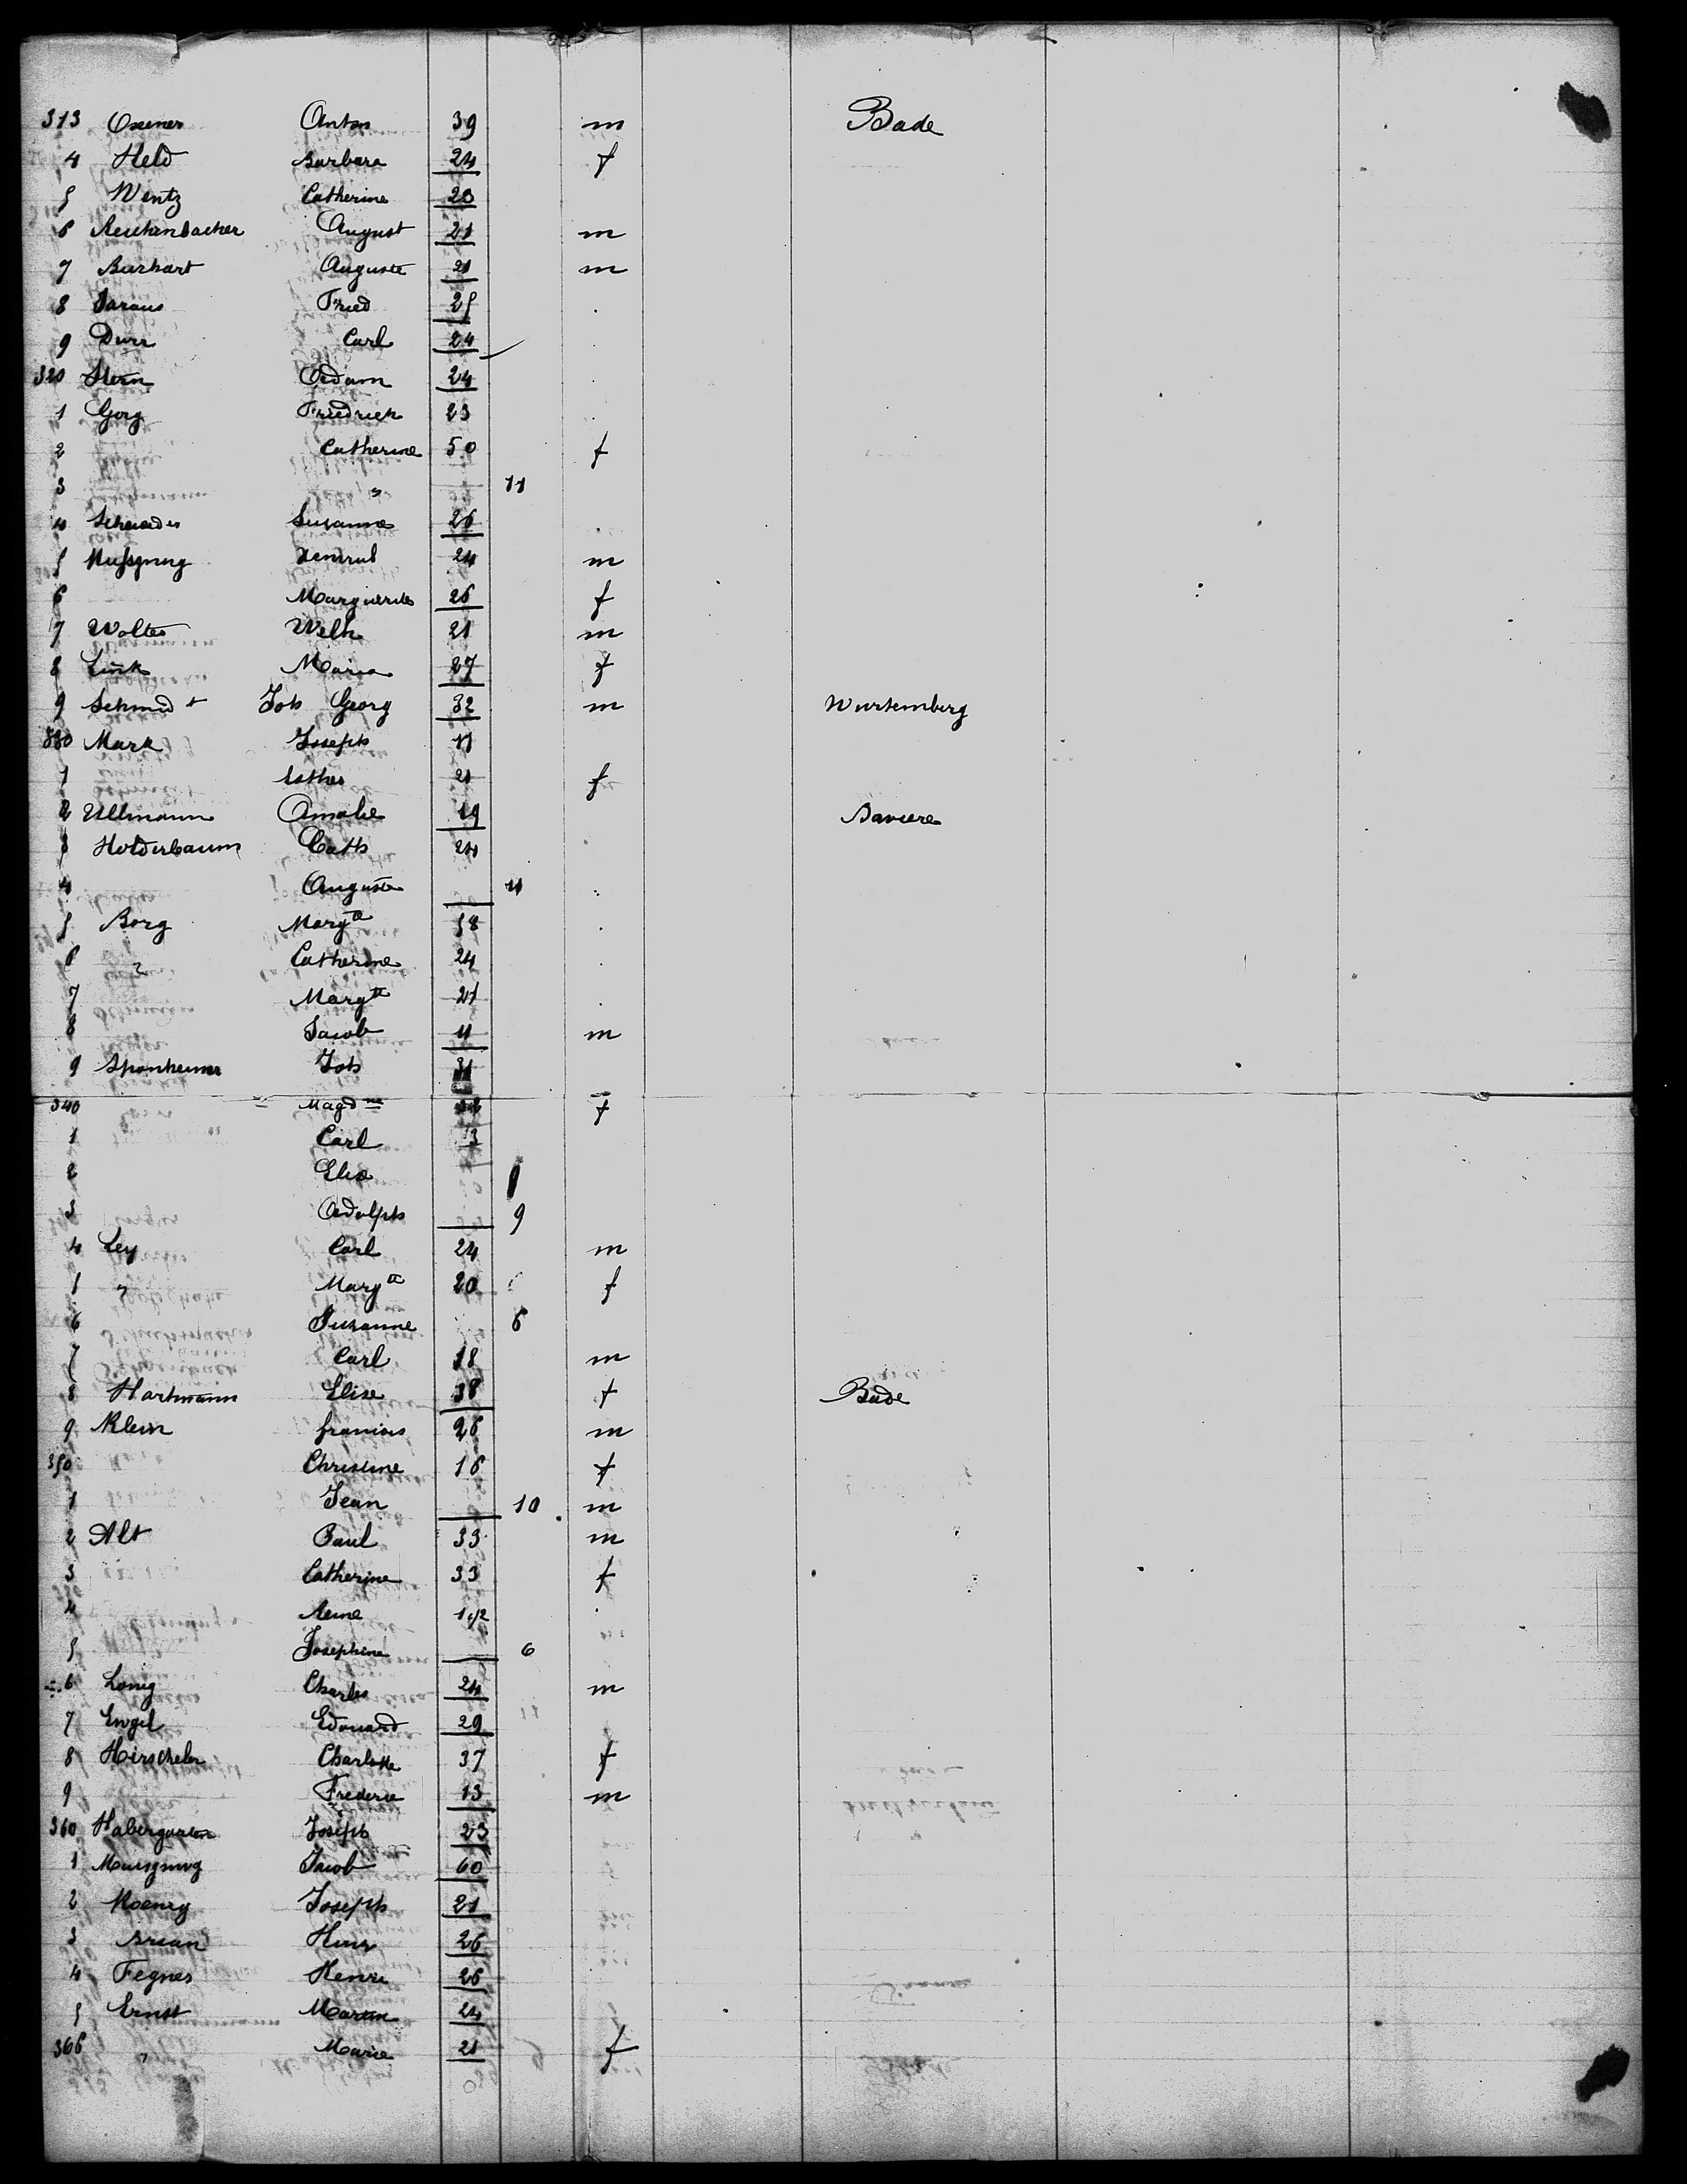 313 Anton 39 m Bade
4 Held Barbara 24 f
5 Wentz Catherine 23
6 Reichenbacher August 21 m
7 Burhart Auguste 21 m
8 Fried 25
9 Durr Carl 24
320 Stern Adam 24
1 Gorg Friedrich 23
2 Catherine 50 f
3 " 11
4 Susanne 26
5 24 m
6 Marguerite 26 f
7 Wolter Wilh 21 m
8 Link Maria 27 f
9 Schmidt Joh Georg 32 m Wurtemberg
330 Mark Joseph 11
1 Esther 21 f
2 Ullmann Amalie 19 Baviere
3 Holderbaum Cath 24
4 Auguste 11
5 Borg Margte 58
6 " Catherine 24
7 Margte 21
8 Jacob 11 m
9 Sponheimer Joh
340 Magdne f
1 Carl 3
2 Elise
3 Adolph 9
4 Ley Carl 24 m
5 " Margte 20 f
6 Susanne 6
7 Carl 18 m
8 Hartmann Elise 38 f Bade
9 Klein francois 26 m
350 Christine 16 f
1 Jean 10 m
2 Alt Paul 33 m
3 Catherine 33 f
4 1 1/2
5 Josephine 6
6 Charles 24 m
7 Engel Edouard 29
8 Charlotte 37 f
9 Frederic 13 m
360 Joseph 23
1 Jacob 60
2 Joseph 21
3 26
4 Fegner Henri 26
5 Ernst Martin 24
366 " Marie 21 f